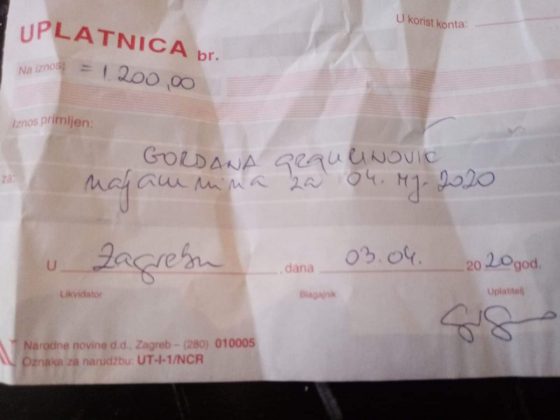 UPLATNICA br.
U korist konta:
Na iznos: =1.200,00
Iznos primljen:
GORDANA
za: najamnina za 04. mj. 2020
U Zagrebu, dana 03.04. 2020 god.
Likvidator Blagajnik Uplatitelj
Narodne novine d.d., Zagreb – (280) 010005
Oznaka za narudžbu: UT-I-1/NCR